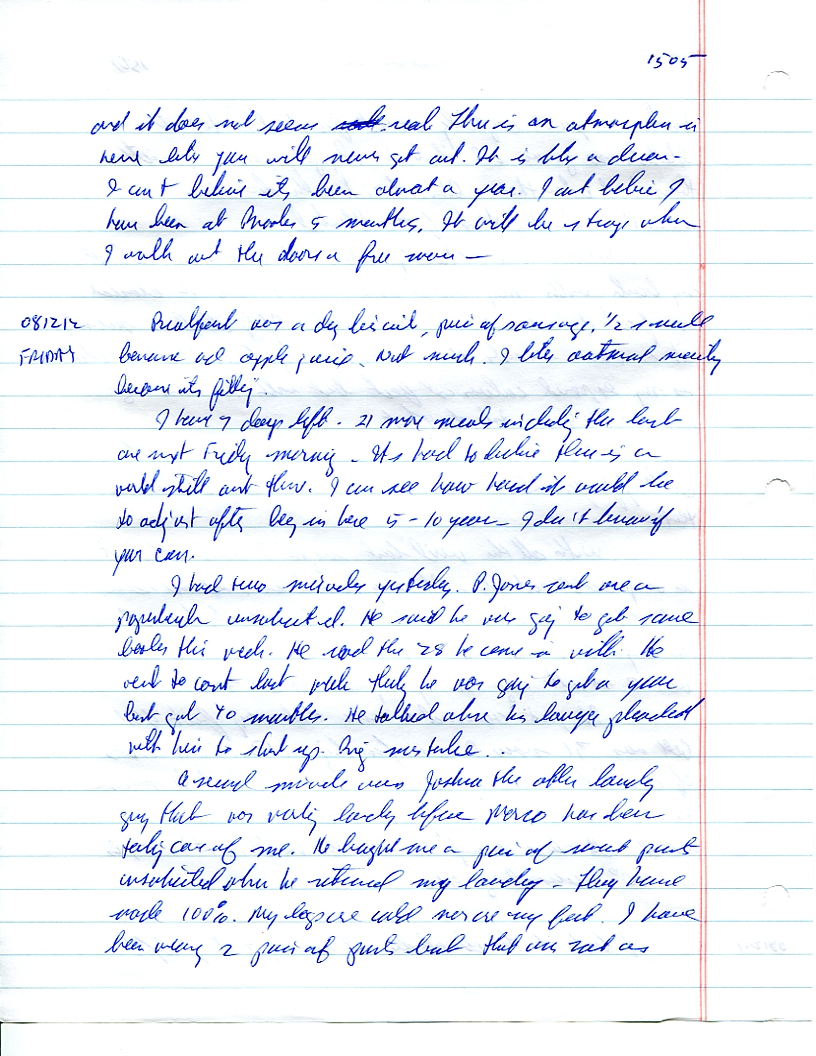 1505
and it does not seem real. There is an atmosphere in
here like you will never get out. It is like a dream -
I can't believe its been almost a year. I cant believe I
have been at 5 months. It will be strange when
I walk out the doors a free man —
081212
FRIDAY
Breakfast was a dry biscuit, piece of sausage, 1/2 small
banana and apple juice. Not much. I like oatmeal mainly
because its filling.
I have 7 days left. 21 more meals including the last
one next Friday morning. Its hard to believe there is a
world still out there. I can see how hard it would be
to adjust after being in here 5 - 10 years - I don't know if
you can.
I had two miracles yesterday. P. Jones sent me a
unsolicited. He said he was going to get some
books this week. He read the 28 he came in with. He
went to court last week thinking he was going to get a year
but got 40 months. He talked when his lawyer pleaded
with him to shut up. Big mistake..
A second miracle was Joshua the other laundry
guy that was working laundry before Marco has been
taking care of me. He brought me a pair of sweat pants
unsolicited when he returned my laundry - they have
made 100%. My legs are cold more my feet. I have
been wearing 2 pair of pants but that was not as